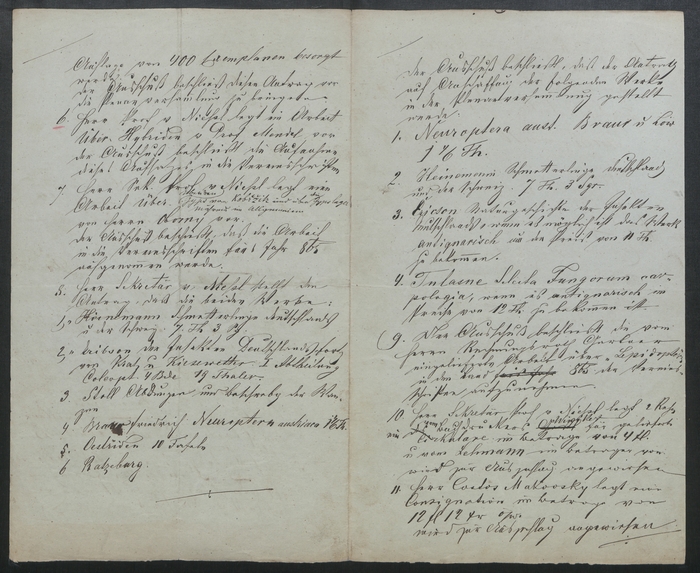 Auflage von 400 Exemplaren besorgt
werde.
der Ausschuß beschließt diesen Antrag vor
die Plenarversammlung zu bringen
6. Herr Prof v Niessl legt die Arbeit
über Hybriden v Prof Mendel vor
der Ausschuß beschließt die Aufnahme
dieses Aufsatzes in die Vereinsschriften
7 Herr Sek. Prof. v Niessl legt eine
Arbeit über
im Allgemeinen
von Herrn vor.
der Ausschuß beschließt, daß die Arbeit
in die Vereinsschriften fürs Jahr
aufgenommen werde.
8. Herr Sekretär v. Niessl stellt den
Antrag, daß die beiden Werke:
1, Heinemann Schmetterlinge Deutschlands
u der Schweiz. 7. Th. 3
2, Erichson die Insekten Deutschlands
von Kraatz u Kiesewetter I Abtheilung
Coleopt. 4 Bde. 19 Thaler.
3 Stoll Abbildungen und
4 Brauer Friedrich Neuroptera austriaca
5. Oedriden 10
6 Ratzeburg.
Der Ausschuß beschließt, daß der Antrag
nach Anschaffung der folgenden Werke
in der Plenarversammlung gestellt
werde.
1. Neuroptera aust. Brauer u
1 76 Th.
2. Heinemann Schmetterlinge Deutschlands
und der Schweiz 7 Th. 3 Sgr.
3. Ericson Naturgeschichte der Insekten
Deutschlands, wenn es möglich ist das Werk
antiquarisch um den Preis von 11 Th.
zu bekommen.
4. Tulasne Selecta Fungorum car-
pologia, wenn es antiquarisch im
Preise von 12 Th zu bekommen ist.
9. Der Ausschuß beschließt die vom
Herrn Rechnungsrath
eingelegte Arbeit über Lepidoptera
in den Band der Vereins-
schriften aufzunehmen.
10. Herr Sekretär Prof v Niessl legt 2
vom Buchdrucker für gelieferte
im Betrage von 4 fl.
u vom Lehmann im Betrage von
wird zur Auszahlung angewiesen
11. Herr Custos Makowsky legt eine
Consignation im Betrage von
12 fl 12 kr
wird zur Auszahlung angewiesen